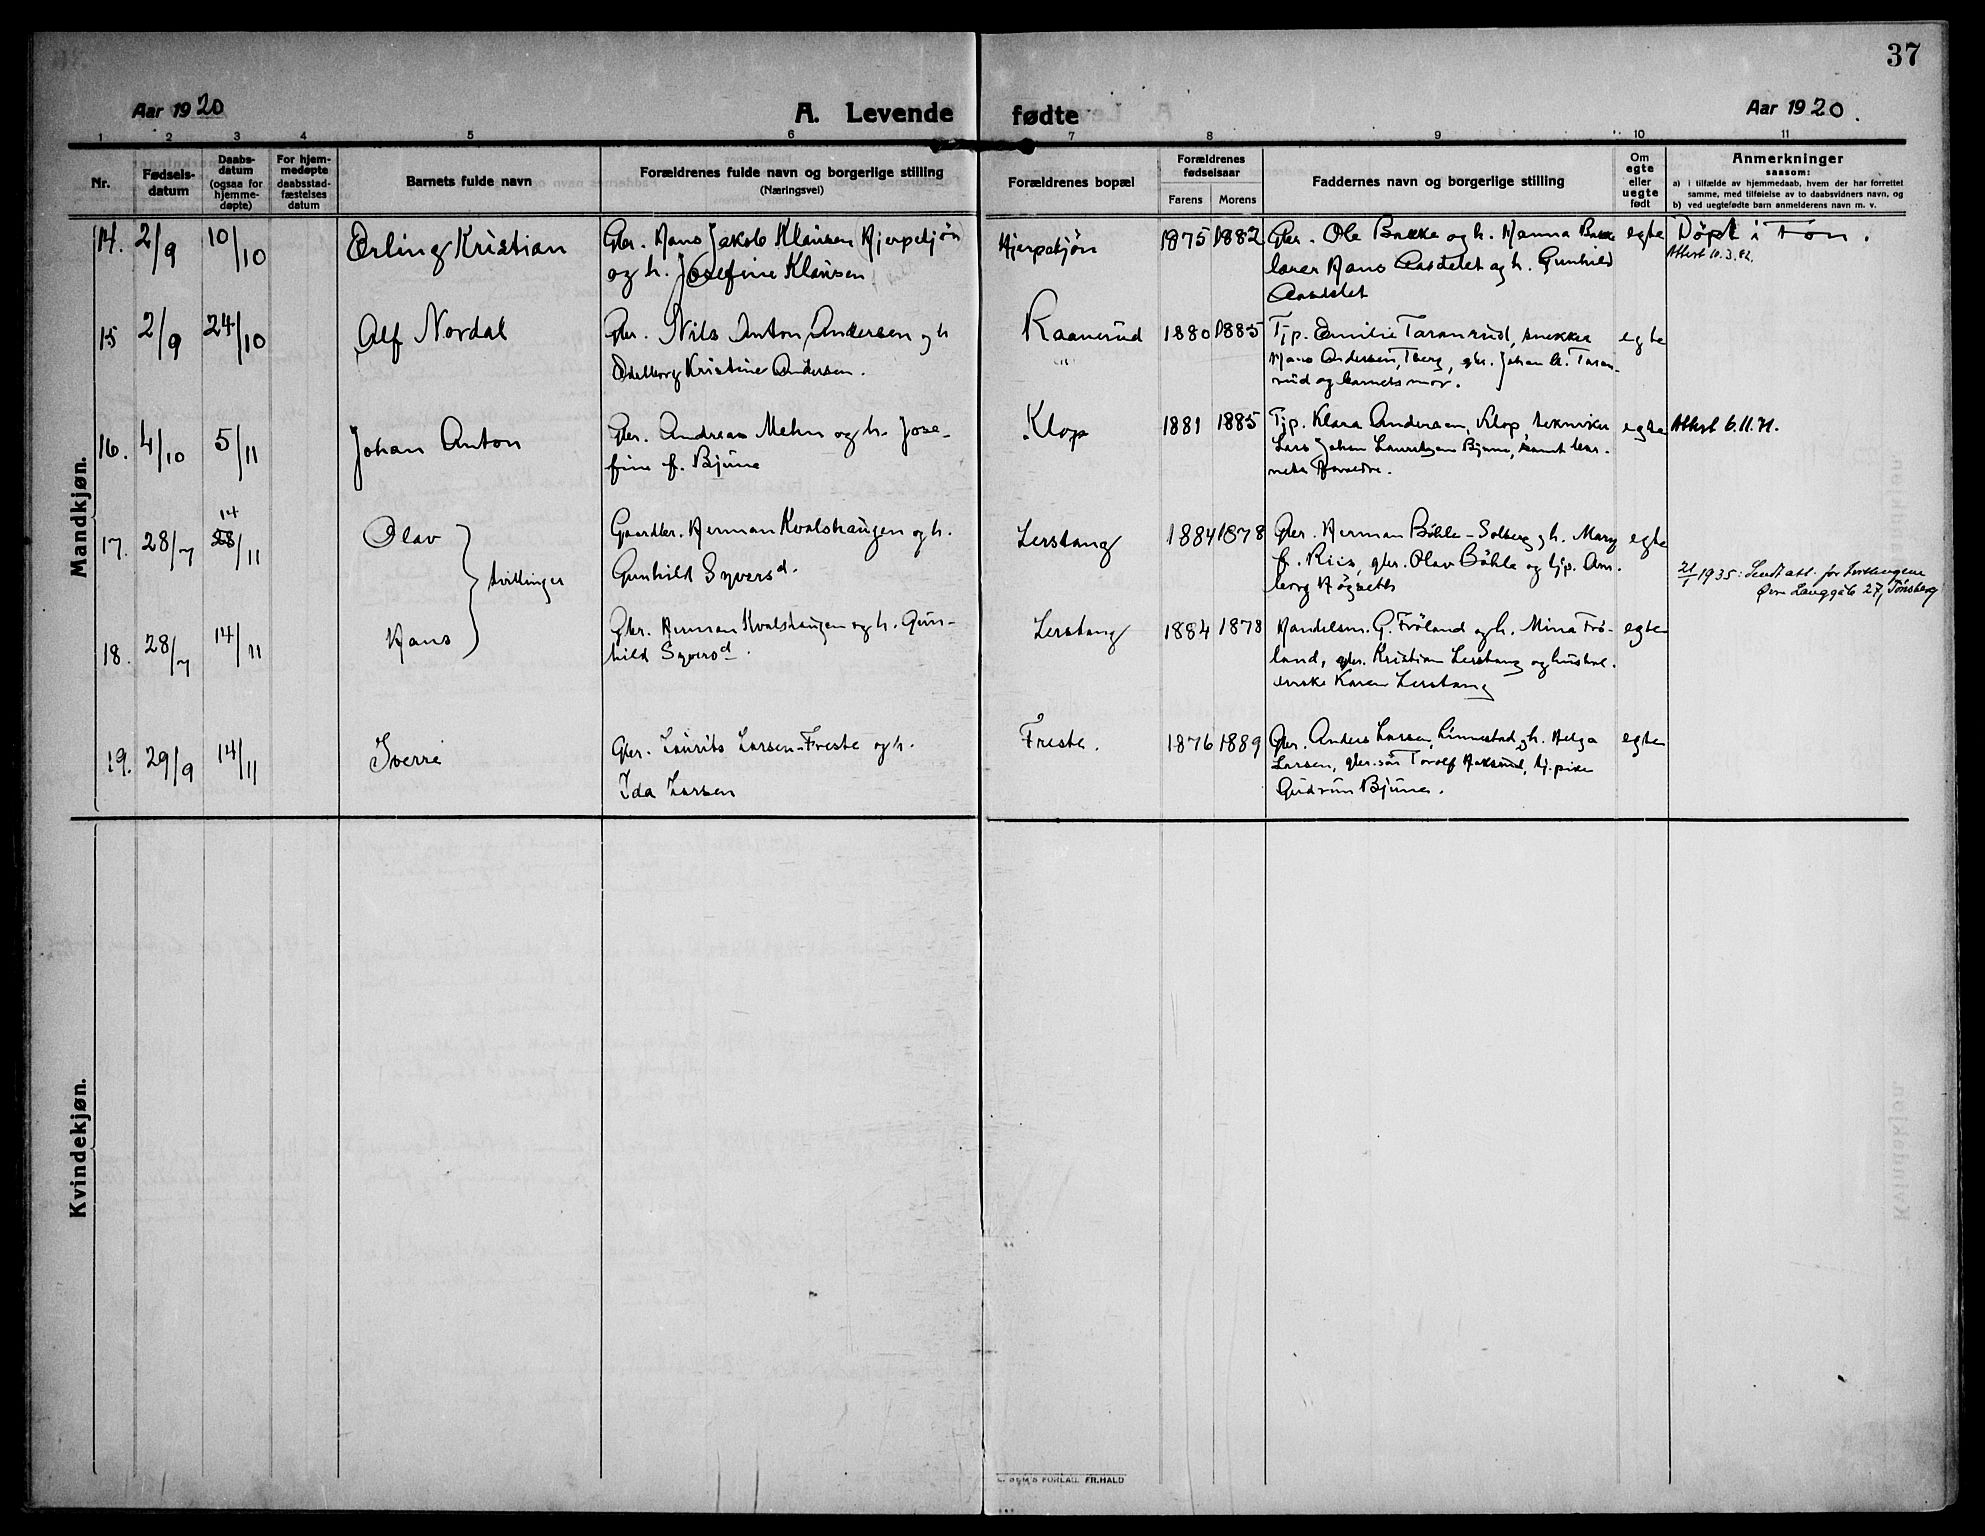 37
Aar 1920
A. Levende fødte
Aar 1920.
1 2 3 4 5 6 7 8 9 10 11
Nr.
Fødsels-
datum
Daabs-
datum
(ogsaa for
hjemme-
døpte)
For hjem-
medøpte
daabsstad-
fæstelses
datum
Barnets fulde navn
Forældrenes fulde navn og borgerlige stilling
(Næringsvei)
Forældrenes bopæl
Forældrenes
fødselsaar
Farens Morens
Faddernes navn og borgerlige stilling
Om
egte
eller
uegte
født
Anmerkninger
saasom:
a) i tilfælde av hjemmedaab, hvem der har forrettet
samme, med tilføielse av to daabsvidners navn, og
b) ved uegtefødte barn anmelderens navn m. v.
Mandkjøn.
14. 2/9 10/10 Erling Kristian
Gbr. Hans Jakob Klausen Hjerpekjøn
og h. Josefine Klausen
Hjerpekjøn 1875 1882
Gbr. Ole Bakke og h. Hanna Bakke
lærer Hans Aasdelet og h. Gunhild
Aasdelet
egte
Døpt i Fon.
Attest 10.3.82.
15 2/9 24/10 Alf Nordal
Gbr. Nils Anton Andersen og h
Kristine Andersen.
Raanerud 1880 1885
Tjp. Emilie Taranrud, snekker
Hans Andersen, Tberg, gbr. Johan A. Taran-
rud og barnets mor.
egte
16. 4/10 5/11 Johan Anton
Gbr. Andreas Mehn og h. Jose-
fine f. Bjune
Klop 1881 1885
Tjp. Klara Andersen, Klop, tekniker
Lars Johan Lauritzen Bjune, samt bar-
nets forældre.
egte
Attest 6.11.71.
17. 28/7 14 28/11 Olav
tvillinger
Gaardbr. Herman Kvalshaugen og h.
Gunhild Syversd.
Lerstang 1884 1878
Gbr. Herman Bøhle-Solberg og h. Mary
f. Riis, gbr. Olav Bøhle og tjp. Am-
borg Høgseth
egte
21/1 1935: Sendt att. for tvillingene
Øvre Langgate 27, Tønsberg
18. 28/7 14/11 Hans
Gbr. Herman Kvalshaugen og h. Gun-
hild Syversd.
Lerstang 1884 1878
Handelsm. G. Frøland og h. Mina Frø-
land, gbr. Kristian Lerstang og hushol-
derske Karen Lerstang
egte
19. 29/9 14/11 Sverre
Gbr. Laurits Larsen-Freste og h.
Ida Larsen
Freste. 1876 1889
Gbr. Anders Larsen, Linnestad og h. Helga
Larsen, gbr.søn Torolf Aaksrud, tj.pike
Gudrun Bjune.
egte
Kvindekjøn.
E. SEM'S FORLAG, FR.HALD